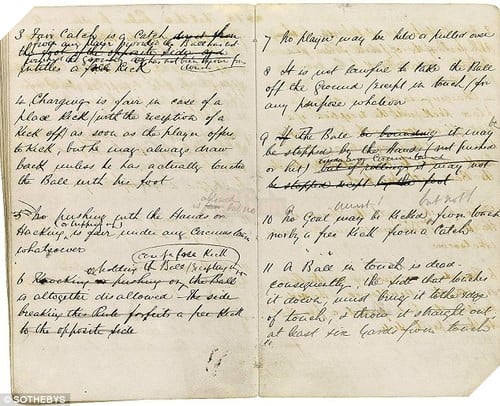 3 Fair Catch is a Catch direct from
off or any player provided the Ball has not
the foot of the opposite side and
entitles a free Kick
4 Charging is fair in case of a
place Kick (with the exception of a
Kick off) as soon as the Player offers
to Kick, but he may always draw
back unless he has actually touched
the Ball with his foot
allowed
but no
5 No pushing with the Hands or
or tripping up
Hacking is fair under any Circumstances
whatsoever
or holding the Ball
6 Knocking or pushing on the Ball
is altogether disallowed. The side
breaking this Rule forfeits a free Kick
to the opposite side
7 No player may be held or pulled over
8 It is not lawful to take the Ball
off the Ground (except in touch) for
any purpose whatever
9 If the Ball be bounding it may be
stopped by the Hand (not pushed
or hit) but if rolling it may not
be stopped except by the foot
must!
but not!
10 No Goal may be Kicked from touch
nor by a free Kick from a Catch
11 A Ball in touch is dead.
consequently, the side that touches
it down, must bring it to the edge
of touch, & throw it straight out,
at least six yards from touch
© SOTHEBYS